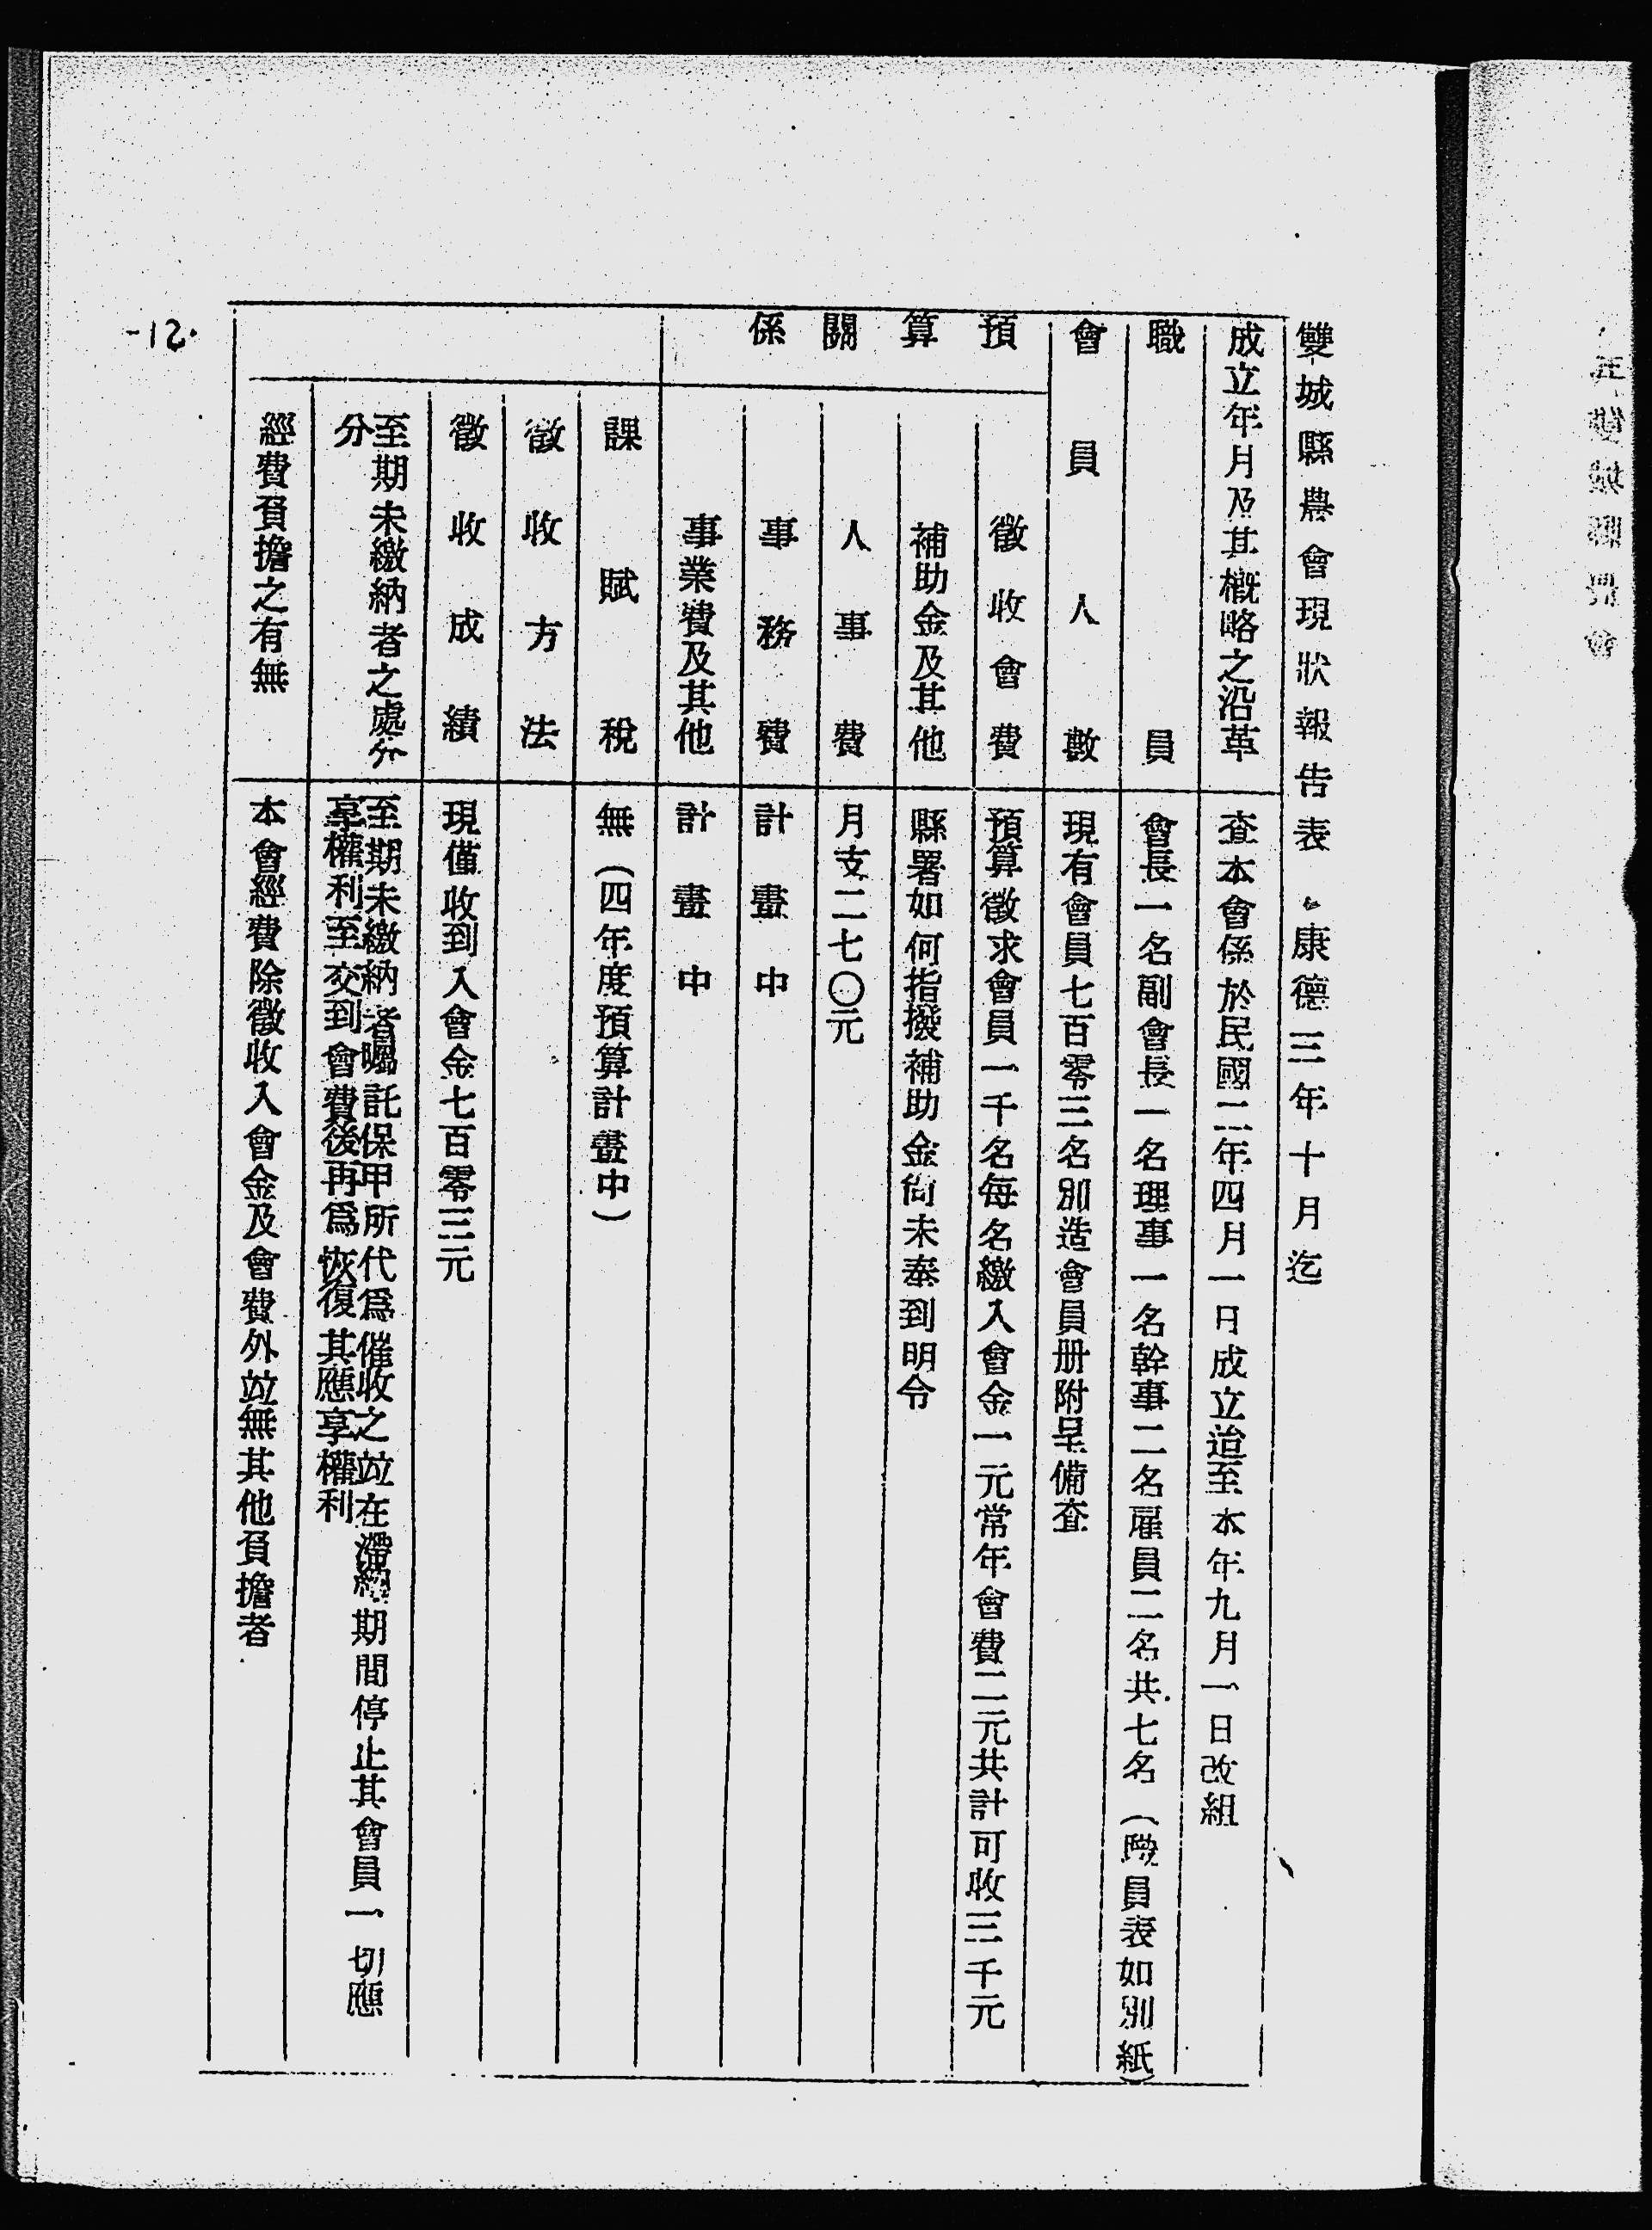 雙城縣農會現狀報告表 康德三年十月迄
成立年月及其概略之沿革
查本會係於民國二年四月一日成立迨至本年九月一日改組
職員
會長一名副會長一名理事一名幹事二名雇員二名共七名（職員表如別紙）
會員人數
現有會員七百零三名別造會員册附呈備查
預算關係
徵收會費
預算徵求會員一千名每名繳入會金一元常年會費二元共計可收三千元
補助金及其他
縣署如何指撥補助金尙未奉到明令
人事費
月支二七〇元
事務費
計畫中
事業費及其他
計畫中
課賦稅
無（四年度預算計畫中）
徵收方法
徵收成績
現僅收到入會金七百零三元
至期未繳納者之處分
分
至期未繳納者囑託保甲所代爲催收之竝在滯納期間停止其會員一切應
享權利至交到會費後再爲恢復其應享權利
經費負擔之有無
本會經費除徵收入會金及會費外竝無其他負擔者
-12.